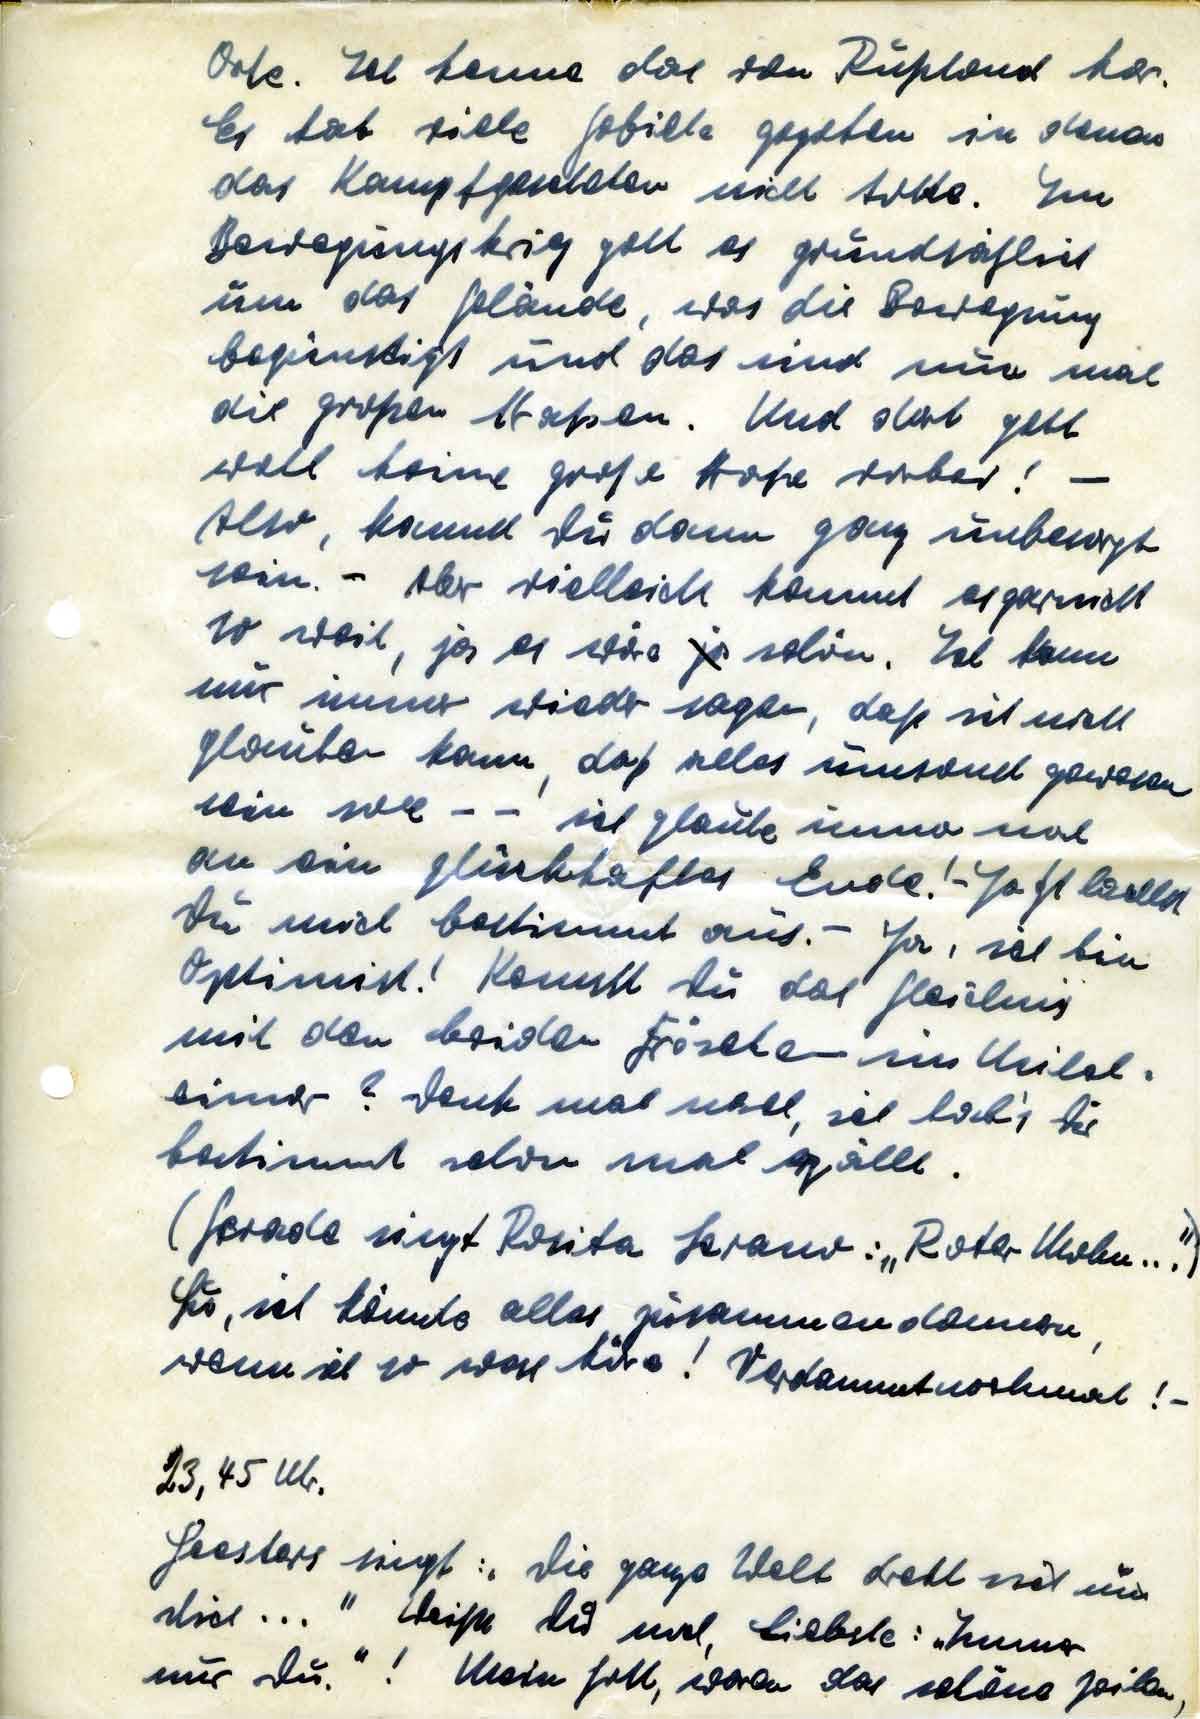 Orte. Ich kenne das von Rußland her.
Es hat viele Gebiete gegeben in denen
das Kampfgeschehen nicht tobte. Im
Bewegungskrieg geht es grundsätzlich
um das Gelände, was die Bewegung
begünstigt und das sind nun mal
die großen Straßen. Und dort geht
wohl keine große Straße vorbei! –
Also, kannst Du dann ganz unbesorgt
sein. – Aber vielleicht kommt es garnicht
so weit, ja es wäre schön. Ich kann
mir immer wieder sagen, daß ich nicht
glauben kann, daß alles umsonst gewesen
sein soll – – ich glaube immer noch
an ein glückhaftes Ende! – Jetzt lachst
Du mich bestimmt aus. – Ja, ich bin
Optimist! Kennst Du das Gleichnis
mit den beiden Fröschen im Milch-
eimer? Denk mal nach, ich hab's Dir
bestimmt schon mal erzählt.
(Gerade singt Rosita Serano: „Roter Mohn..")
Du, ich könnte alles zusammendonnern,
wenn ich so was höre! Verdammtnochmal! –
23,45 Uhr.
Heesters singt: „Die ganze Welt dreht sich um
dich ..." Weißt Du noch, Liebste: „Immer
nur Du."! Mein Gott, waren das schöne Zeiten,